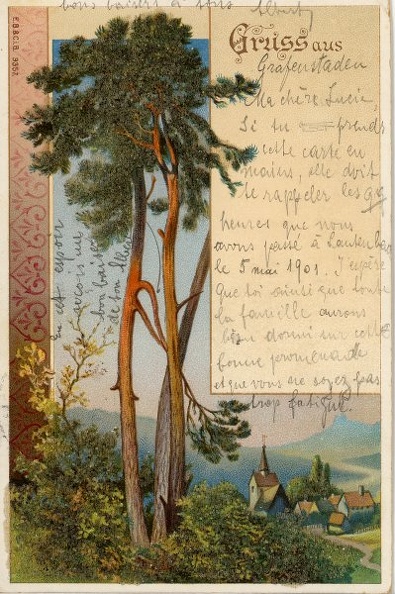 bons baisers à tous Albert
E.B.&C.i.B. 9357
Gruss aus
Grafenstaden
Ma chère Lucie,
Si tu prends
cette carte en
mains, elle doit
te rappeler les qq
heures que nous
avons passé à
le 5 mai 1901. J'espère
que toi ainsi que toute
la famille aurons
bien dormi sur cette
bonne promenade
et que vous ne soyez pas
trop fatigué.
En cet espoir
reçois un
bon baiser
de ton